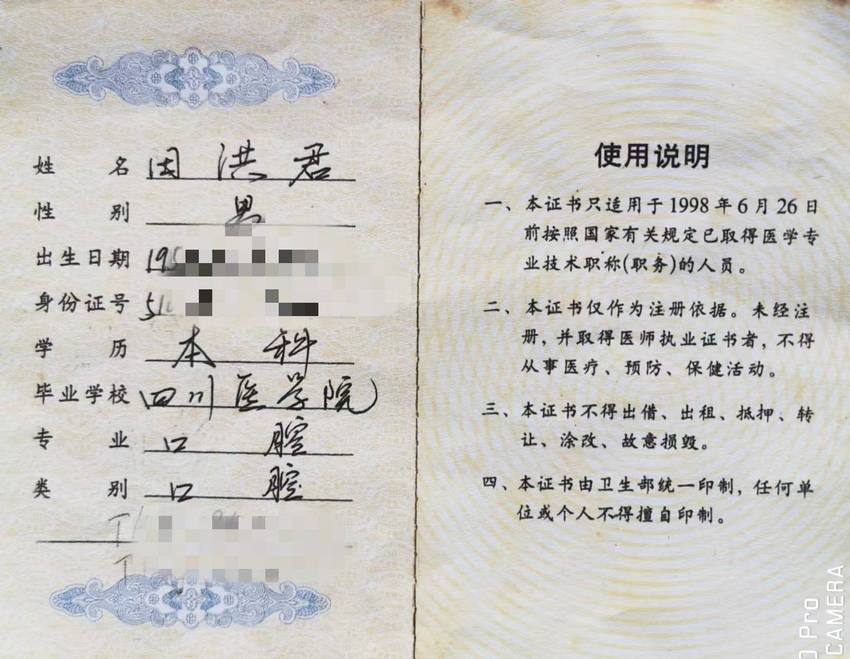 姓 名 洪君
性 别 男
出生日期 195
身份证号 51
学 历 本 科
毕业学校 四川医学院
专 业 口 腔
类 别 口 腔
使用说明
一、本证书只适用于1998年6月26日
前按照国家有关规定已取得医学专
业技术职称(职务)的人员。
二、本证书仅作为注册依据。未经注
册,并取得医师执业证书者,不得
从事医疗、预防、保健活动。
三、本证书不得出借、出租、抵押、转
让、涂改、故意损毁。
四、本证书由卫生部统一印制,任何单
位或个人不得擅自印制。
Pro
CAMERA